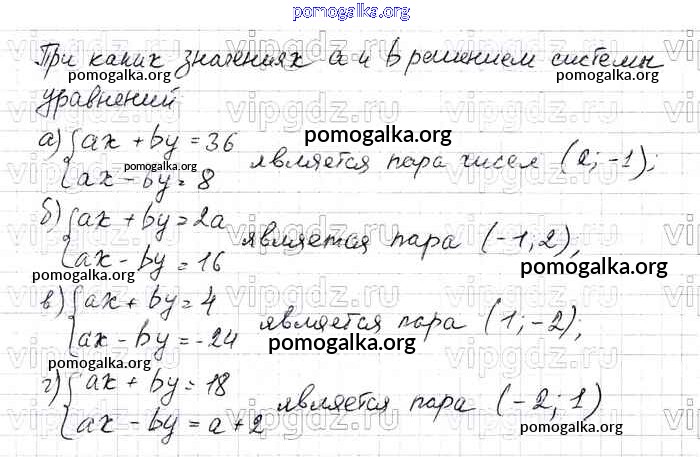 pomogalka.org
При каких значениях а и b решением системы
pomogalka.org pomogalka.org
уравнений
vipgdz.ru
а) { ax + by = 36
ax - by = 8 является пара чисел (2; -1);
pomogalka.org
pomogalka.org pomogalka.org
б) { ax + by = 2a
ax - by = 16 является пара (-1; 2);
pomogalka.org pomogalka.org
vipgdz.ru
в) { ax + by = 4
ax - by = -24 является пара (1; -2);
pomogalka.org pomogalka.org
vipgdz.ru
г) { ax + by = 18
ax - by = a + 2 является пара (-2; 1)
pomogalka.org pomogalka.org
pomogalka.org